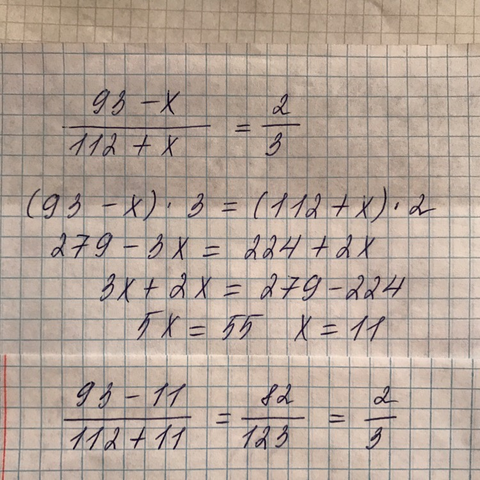 (93 - x)/(112 + x) = 2/3
(93 - x) · 3 = (112 + x) · 2
279 - 3x = 224 + 2x
3x + 2x = 279 - 224
5x = 55 x = 11
(93 - 11)/(112 + 11) = 82/123 = 2/3